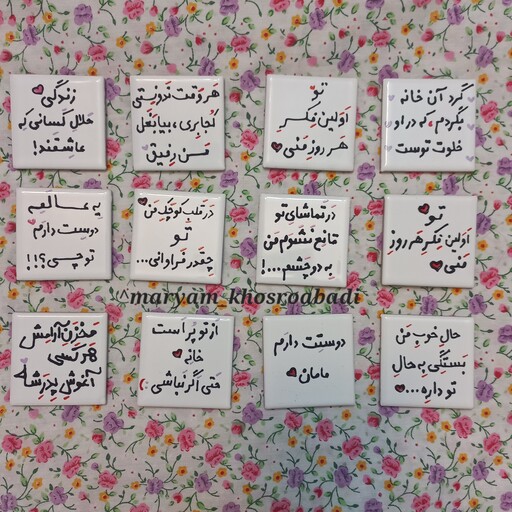 گرد آن خانه
بگردم، که در او
خلوت توست
تو
اولین فکر
هر روز منی
هر وقت ندونستی
کجا بری، بیا بغل
من رفیق
زندگی
حلال کسانی که
عاشقند!
تو
اولین فکر هر روز
منی
در تماشای تو
قانع نشوم من
به دو چشم...!
در قلب کوچک من
تو
چقدر فراوانی...
یه عالمه
دوست دارم
تو چی؟!!
^maryam_khosroabadi
حال خوب من
بستگی به حال
تو داره...
دوستت دارم
مامان
از تو پر است
خانه
منی اگر نباشی:)
مخزن آرامش
هر کسی
آغوش پدرشه